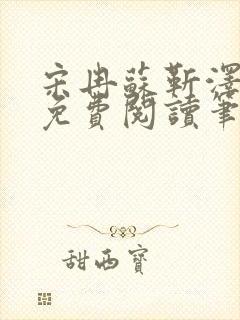 宋冉蘇靳澤
免費閱讀筆
甜西寶